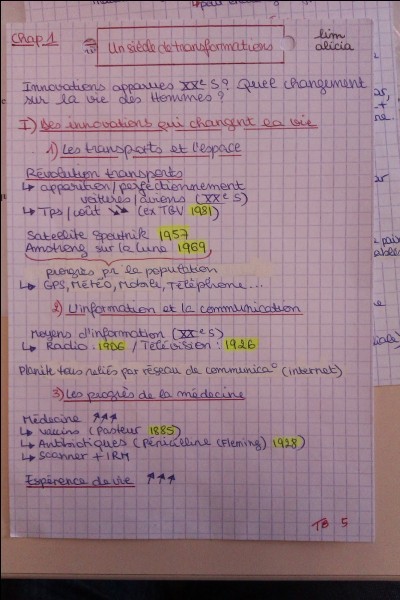 Chap 1
Un siècle de transformations
lim
alicia
Innovations apparues XXe S? Quel changement
sur la vie des Hommes?
I) Des innovations qui changent la vie
1) Les transports et l'espace
Révolution transports
↳ apparition/perfectionnement
voitures/avions (XXe S)
↳ Tps/coût ↘↘ (ex TGV 1981)
Satellite Spoutnik 1957
Amstrong sur la lune 1969
progrès pr la population
↳ GPS, Météo, Mobile, Téléphone...
2) L'information et la communication
moyens d'information (XXe S)
↳ Radio : 1906 / Télévision : 1926
Planète tous reliés par réseau de communica° (internet)
3) Les progrès de la médecine
Médecine ↗↗↗
↳ vaccins (Pasteur 1885)
↳ Antibiotiques (Pénicilline (Fleming) 1928)
↳ Scanner + IRM
Espérance de vie ↗↗↗
TB 5